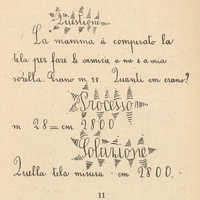 Questione
La mamma à comperato la
tela per fare le camice, a me e a mia
sorella. Erano m. 28. Quanti cm erano?
Processo
m 28 = cm 2800
Soluzione
Quella tela misura cm 2800.
11